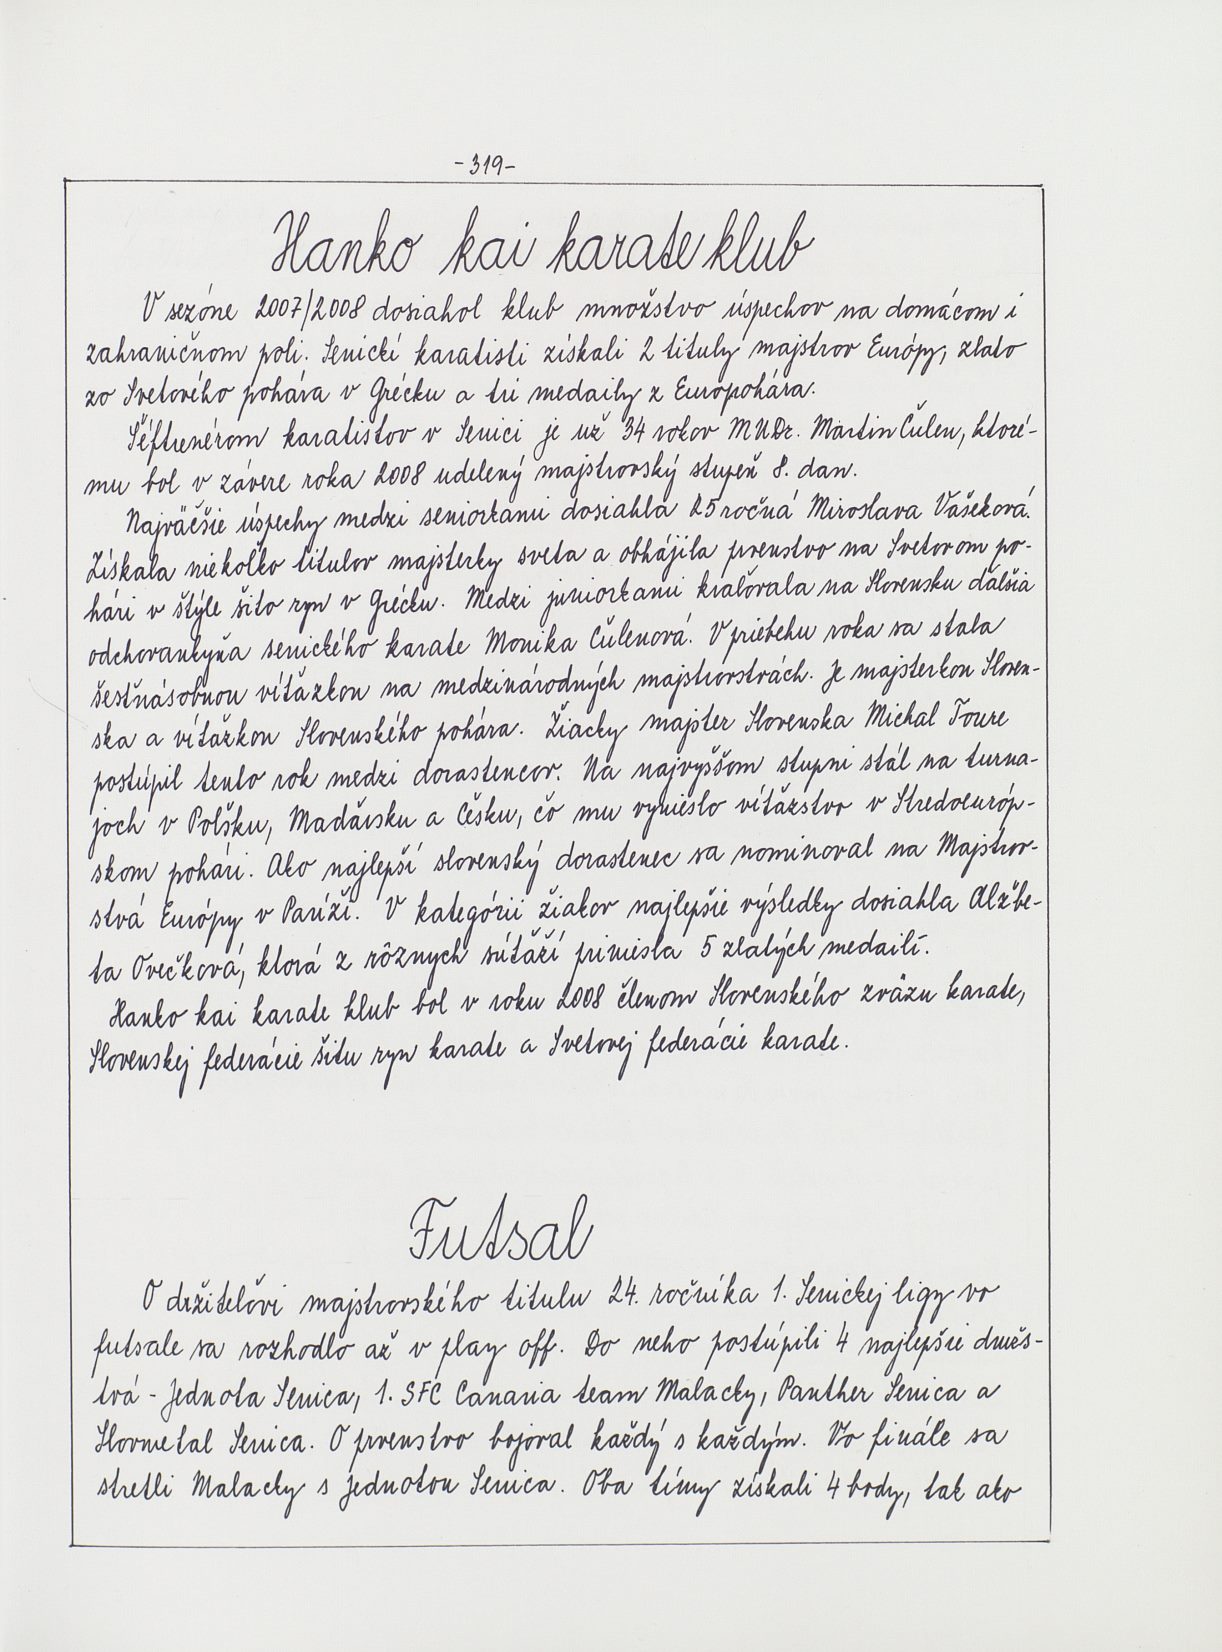 -319-
Hanko kai karate klub
V sezóne 2007/2008 dosiahol klub množstvo úspechov na domácom i
zahraničnom poli. Senickí karatisti získali 2 tituly majstrov Európy, zlato
zo Svetového pohára v Grécku a tri medaily z Europohára.
Šéftrenérom karatistov v Senici je už 34 rokov MUDr. Martin Čulen, ktoré-
mu bol v závere roka 2008 udelený majstrovský stupeň 8. dan.
Najväčšie úspechy medzi seniorkami dosiahla 25 ročná Miroslava Vašeková.
Získala niekoľko titulov majsterky sveta a obhájila prvenstvo na Svetovom po-
hári v štýle šito ryn v Grécku. Medzi juniorkami kraľovala na Slovensku ďalšia
odchovankyňa senického karate Monika Čulenová. V priebehu roka sa stala
šesťnásobnou víťazkou na medzinárodných majstrovstvách. Je majsterkou Sloven-
ska a víťazkou Slovenského pohára. Žiacky majster Slovenska Michal Toure
postúpil tento rok medzi dorastencov. Na najvyššom stupni stál na turna-
joch v Poľsku, Maďarsku a Česku, čo mu vynieslo víťazstvo v Stredoeuróp-
skom pohári. Ako najlepší slovenský dorastenec sa nominoval na Majstrov-
stvá Európy v Paríži. V kategórii žiakov najlepšie výsledky dosiahla Alžbe-
ta Ovečková, ktorá z rôznych súťaží priniesla 5 zlatých medailí.
Hanko kai karate klub bol v roku 2008 členom Slovenského zväzu karate,
Slovenskej federácie šitu ryn karate a Svetovej federácie karate.
Futsal
O držiteľovi majstrovského titulu 24. ročníka 1. Senickej ligy vo
futsale sa rozhodlo až v play off. Do neho postúpili 4 najlepšie družs-
tvá - Jednota Senica, 1. SFC Canaria team Malacky, Panther Senica a
Slovmetal Senica. O prvenstvo bojoval každý s každým. Vo finále sa
stretli Malacky s Jednotou Senica. Oba tímy získali 4 body, tak ako